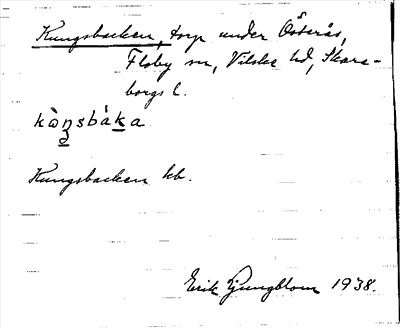 Kungsbacken, torp under Österås,
Floby sn, Vilske hd, Skara-
borgs l.
kòŋsbàka
Kungsbacken kb.
Erik Ljungblom 1938.